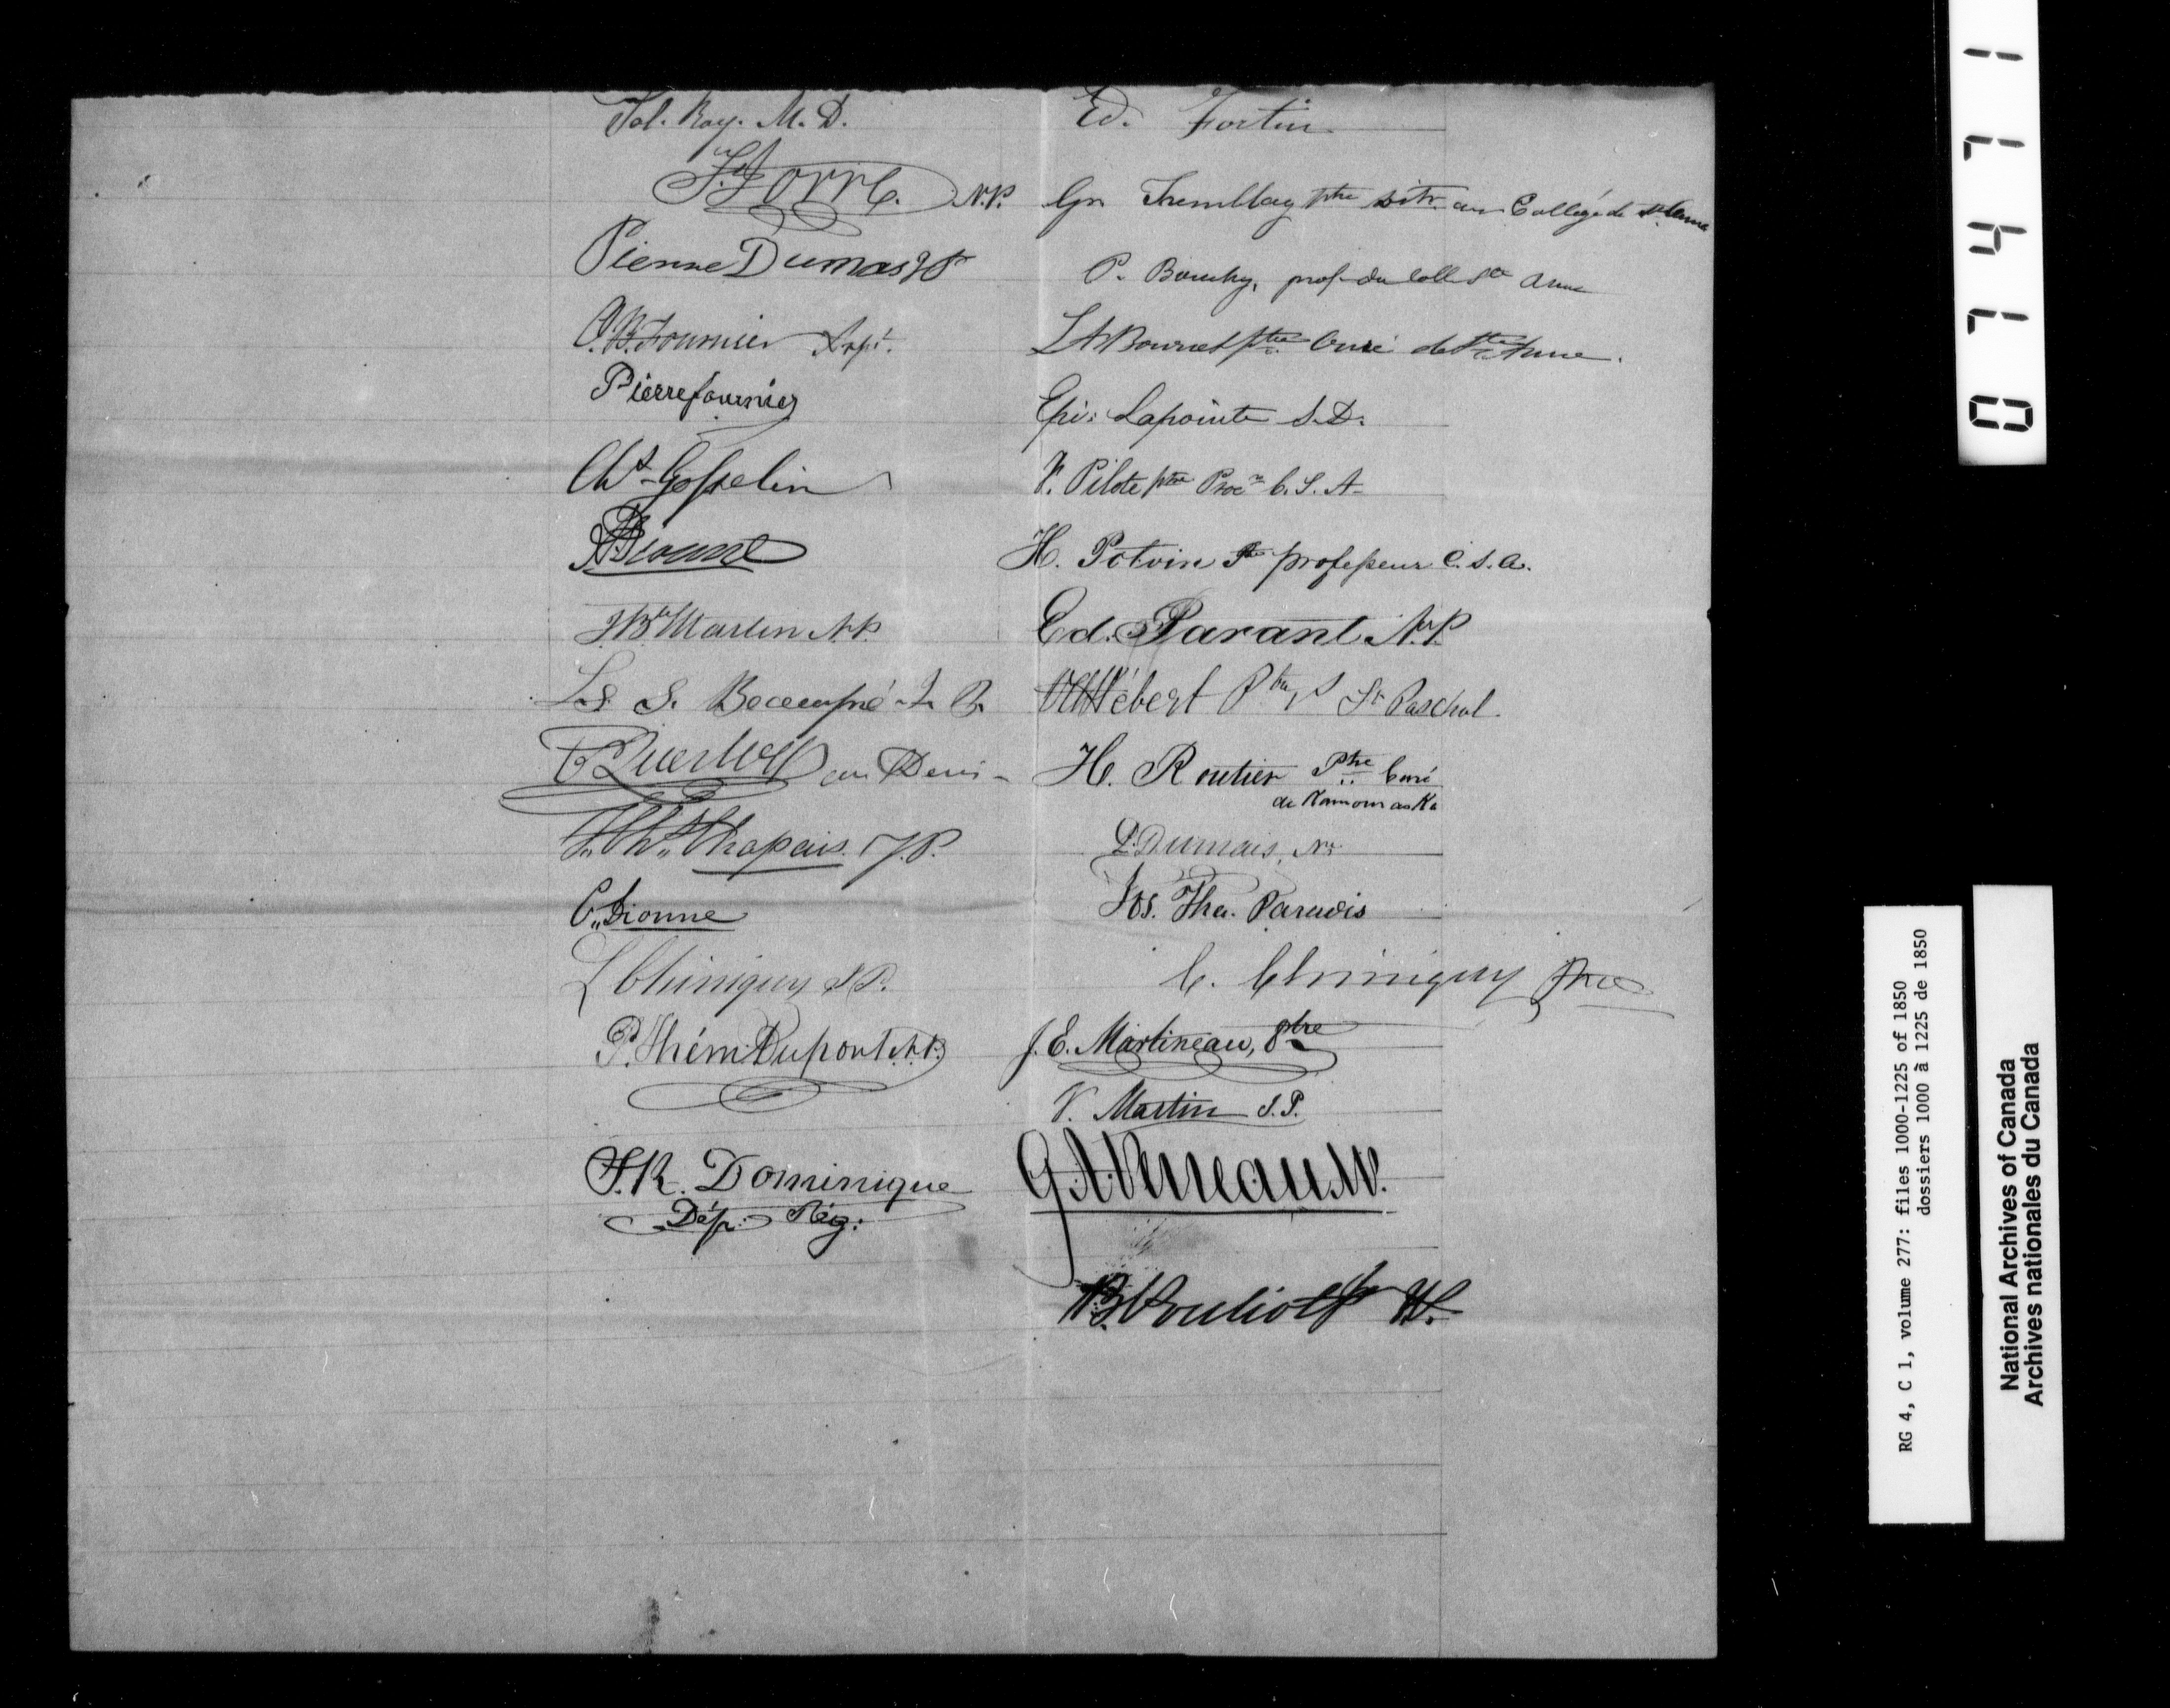 Tol. Roy. M. D.
N.P.
Pierre Dumas JP
O. B. Fournier Capt.
Pierre fournier
Chs Gosselin
Dionne
J. Bte Martin N.P.
Ls S.
J. Chs Chapais. J.P.
C. Dionne
L Chiniquy J.P.
P. Thém. Dupont N.P.
F. R. Dominique
Dép. Rég:
Ed. Fortin
Gn Tremblay ptre au Collége de Ste Anne
P. Bouchy, prof. du Coll. Ste Anne
L A Bourret ptre Curé de Ste Anne.
Epi: Lapointe S.D.
F. Pilote ptre Procr C. S. A.
H. Potvin Ptre professeur C. S. A.
Ed. Parant N.P.
Hébert Ptre St Paschal.
H. Routier Ptre Curé
de Kamouraska
P. Dumais, Nre
Jos. Tha. Paradis
C. Chiniquy Ptre
J. E. Martineau, Ptre
V. Martin J.P.
G. A. Verreau N.P.
B. Pouliot
07471
RG 4, C 1, volume 277: files 1000-1225 of 1850
dossiers 1000 à 1225 de 1850
National Archives of Canada
Archives nationales du Canada